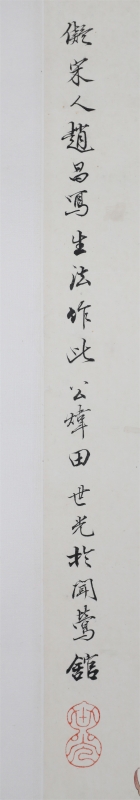 儗宋人趙昌寫生法作此公煒田世光於聞鶯館
世光